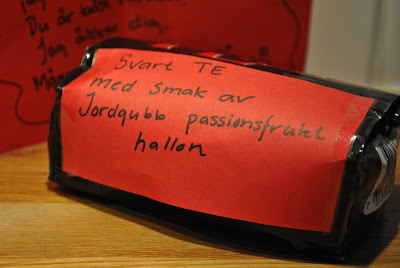 Du är bäst
Jag älskar dig.
Svart TE
med smak av
Jordgubb passionsfrukt
hallon